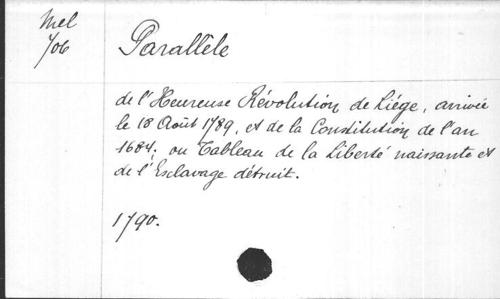 Mel
706
Parallèle
de l'Heureuse Révolution de Liége, arrivée
le 18 Août 1789, et de la Constitution de l'an
1684, ou Tableau de la Liberté naissante et
de l'Esclavage détruit.
1790.